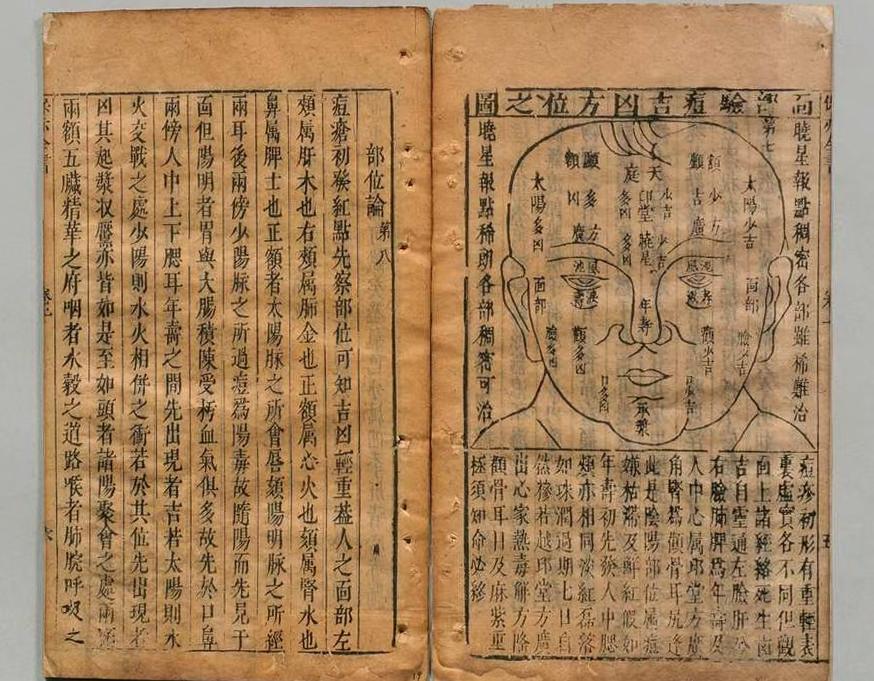 面部驗痘吉凶方位之圖
第七
曉星報點稠密各部雖稀難治
曉星報點稀朗各部稠密可治
太陽少吉
太陽多凶
天庭
印堂
曉星
年壽
承漿
顴少吉
顴多凶
口少吉
口多凶
臉少吉
臉多凶
面部
面部
痘疹初形有重輕表
裏虛實各不同但觀
面上諸經絡先生凶
吉自靈通左臉肝分
右臉肺脾為年壽及
人中心属印堂方廣
角腎為顴骨耳尻逢
此是陰陽部位属痘
嫌枯滯及鮮紅假如
年壽初先發人中腮
頰亦相同淡紅磊落
如珠潤過期七日自
然糝若越印堂方廣
出心家熱毒解方隆
顴骨耳目及麻紫重
極須知命必終
部位論
第八
痘瘡初發紅點先察部位可知吉凶輕重葢人之面部左
頰属肝木也右頰属肺金也正額属心火也頦属腎水也
鼻属脾土也正額者太陽脉之所會唇頦陽明脉之所經
兩耳後兩傍少陽脉之所過痘為陽毒故隨陽而先見于
面但陽明者胃與大腸積陳受朽血氣俱多故先於口鼻
兩傍人中上下腮耳年壽之間先出現者吉若太陽則水
火交戰之處少陽則水火相併之衝若於其位先出現者
凶其起漿收靨亦皆如是至如頭者諸陽聚會之處兩
兩額五臟精華之府咽者水穀之道路喉者肺脘呼吸之